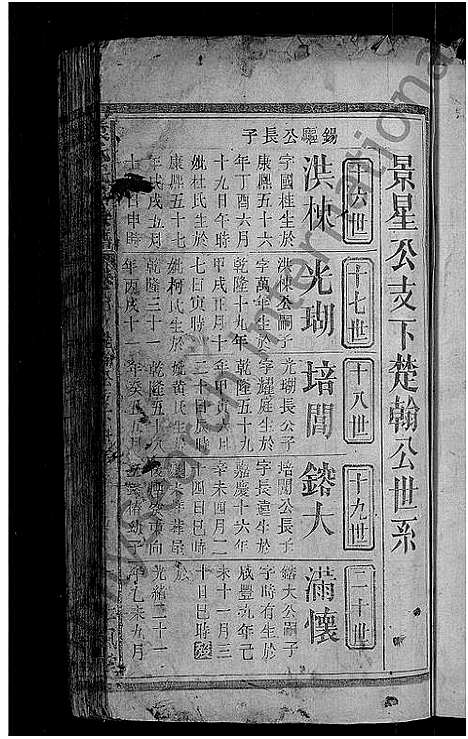 景星公支下楚翰公世系
十六世
十七世
十八世
十九世
二十世
錫驅公長子
洪棟
字國桂生於
康熙五十六
年丁酉六月
十九日午時
妣杜氏生於
康熙五十七
年戊戌五月
日申時
光瑚
洪棟公嗣子
字萬年生於
乾隆十九年
甲戌正月十
七日寅時
妣柯氏生於
乾隆三十一
年丙戌十一
培閏
光瑚長公子
字耀庭生於
乾隆五十九
年甲寅
二十日巳時
黃氏生於
乾隆五十八
年癸丑
鎔大
培閏公長子
字長意生於
嘉慶十六年
辛未四月二
十四日巳時
滿懷
鎔大公嗣子
字時有生於
咸豐九年己
未十一月三
十日巳時發
於
光緒二十一
年乙未九月